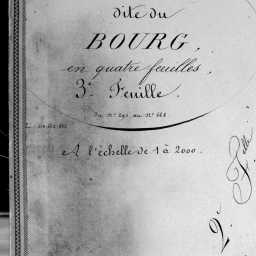 dite du
BOURG,
en quatre feuilles,
3.e Feuille.
Du N.º 291 au N.º 668
A l'échelle de 1 à 2000.
2.e F.elle